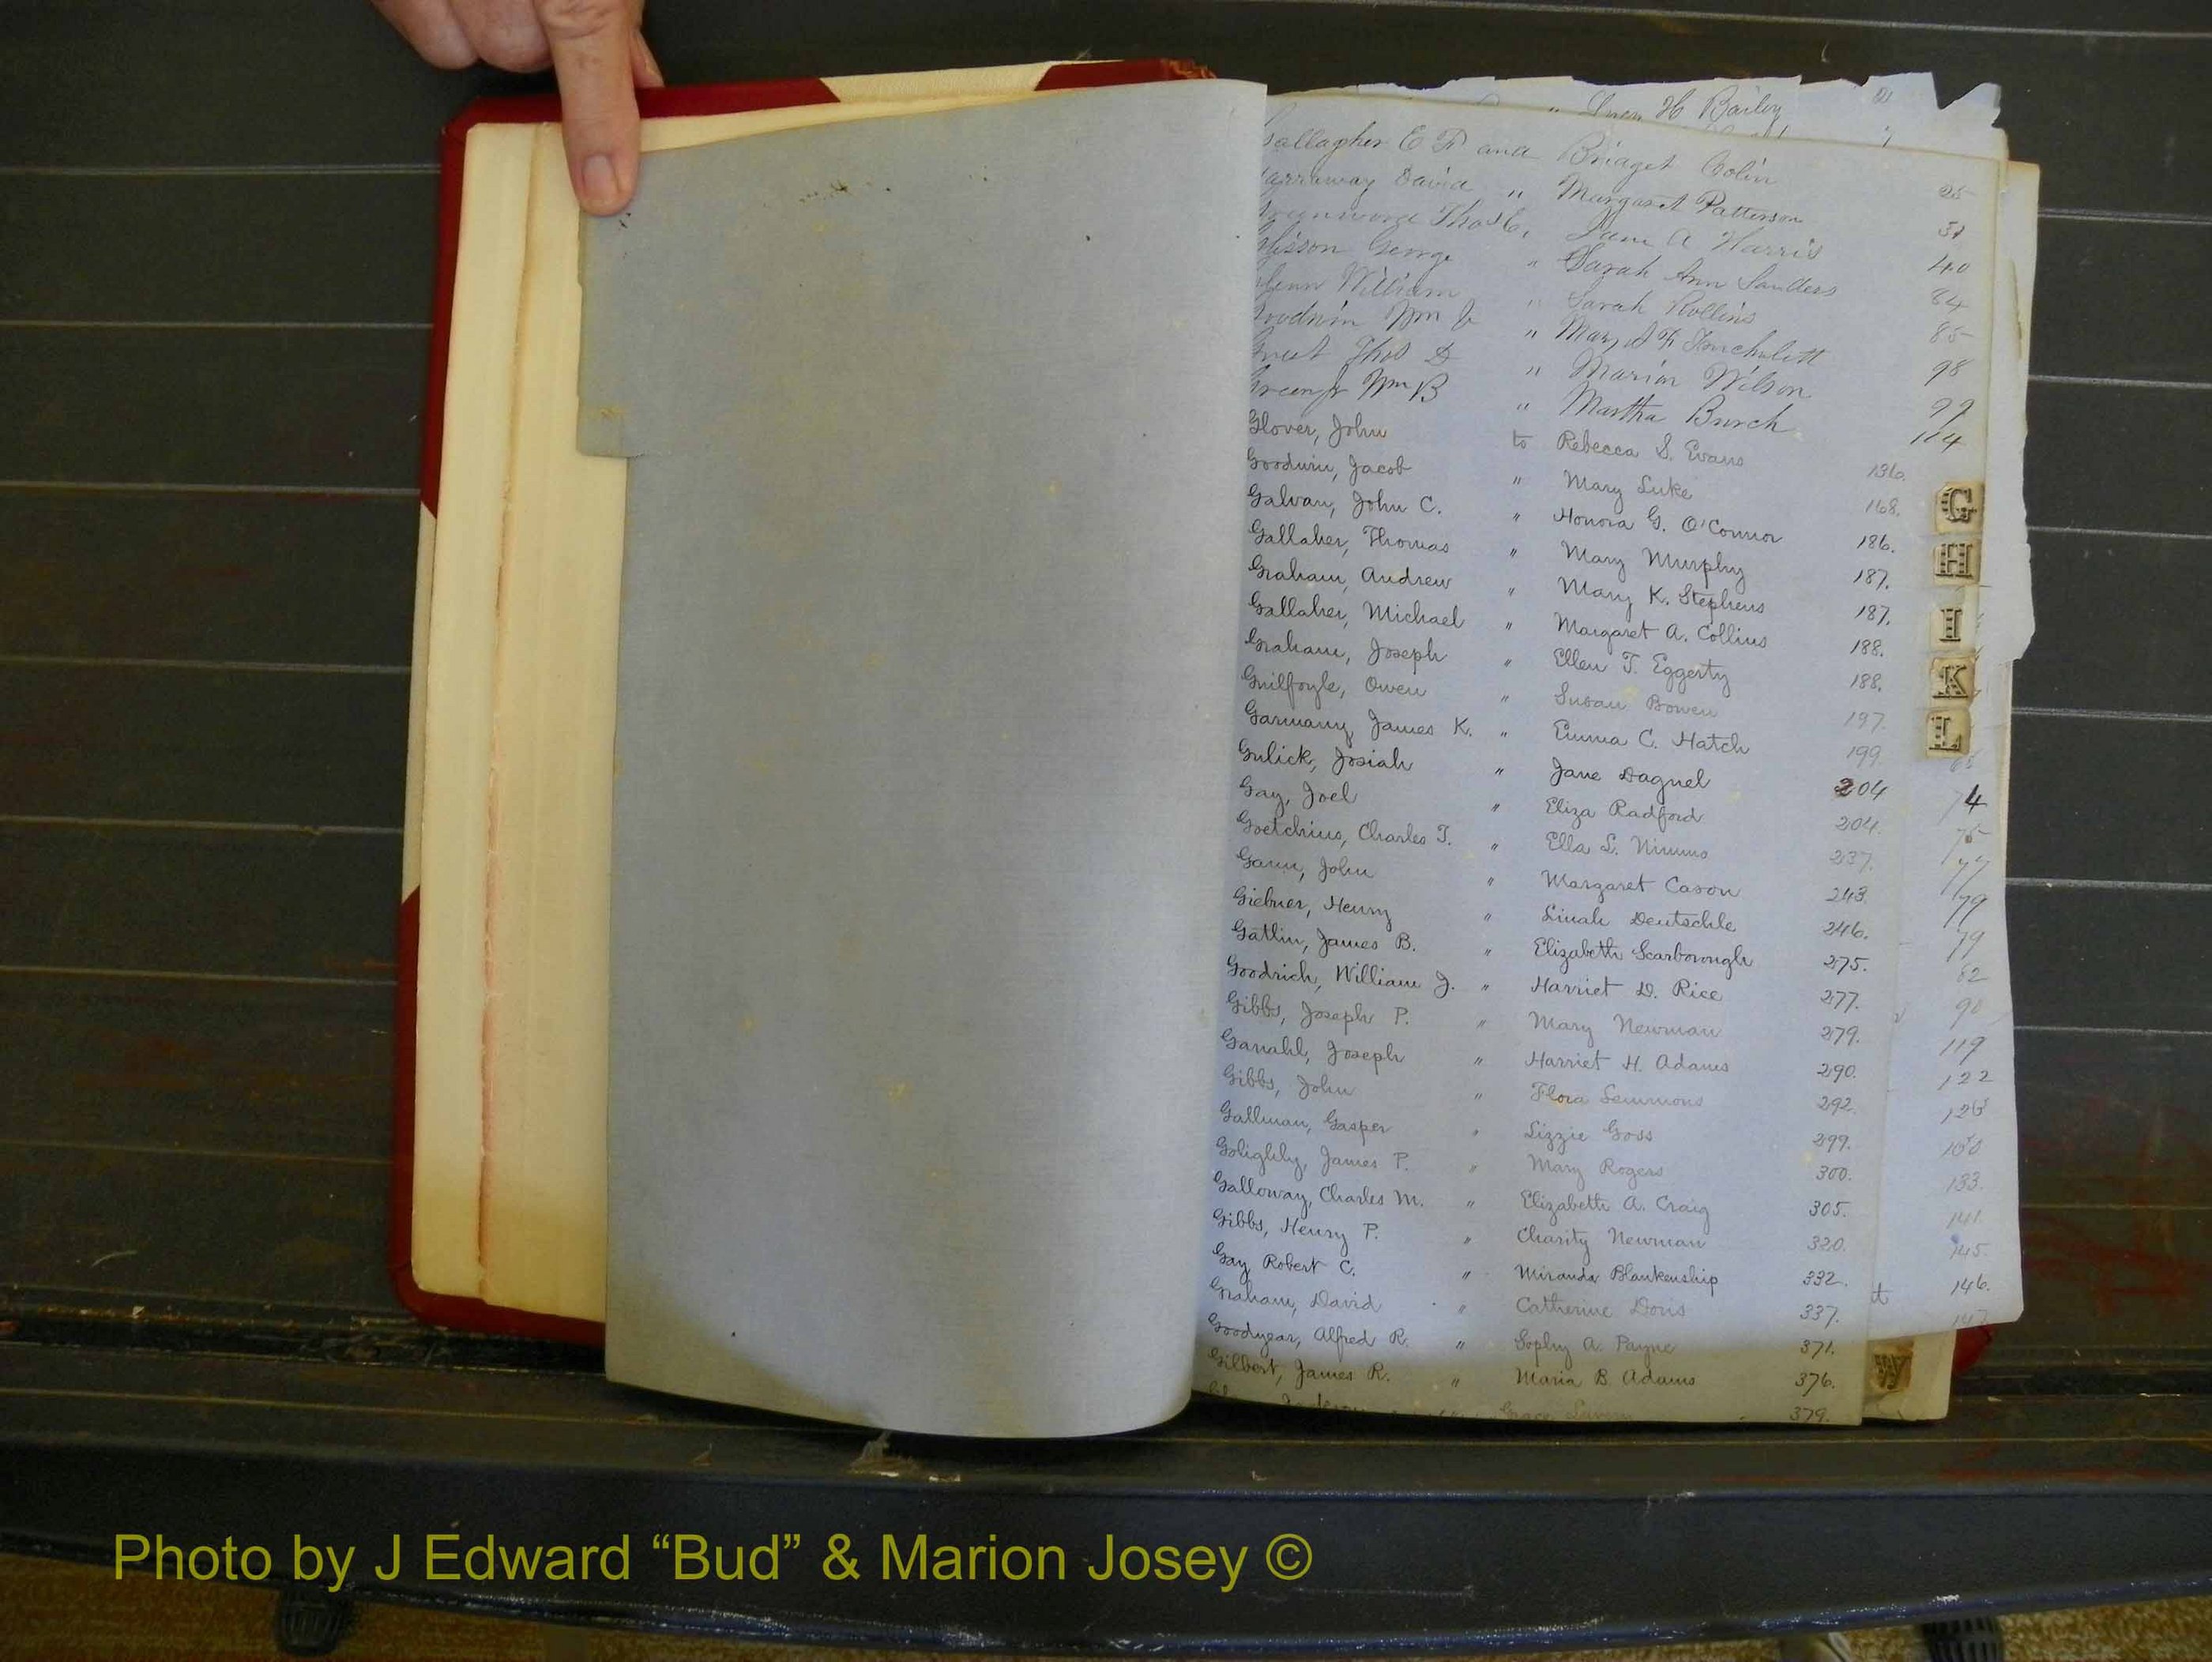 Susan H Bailey
Gallagher E F and Bridget Colin 25
Garraway David " Margaret Patterson 31
Thos C, Jane A Harris 40
Glisson George " Sarah Ann Sanders 84
Glenn William " Sarah Rollins 85
Goodwin Wm " Mary 98
Guest Thos D " Marion Wilson 99
Green Jr Wm B " Martha Burch 114
Glover, John to Rebecca S. Evans 136.
Goodwin, Jacob " Mary Luke 168.
Galvan, John C. " Honora G. O'Connor 186.
Gallaher, Thomas " Mary Murphy 187.
Graham, Andrew " Mary K. Stephens 187.
Gallaher, Michael " Margaret A. Collins 188.
Graham, Joseph " Ellen T. Eggerty 188.
Guilfoyle, Owen " Susan Bowen 197.
Garmany, James K. " Emma C. Hatch 199.
Gulick, Josiah " Jane Dagnel 204
Gay, Joel " Eliza Radford 204.
Goetchius, Charles T. " Ella L. Nimmo 237.
Gann, John " Margaret Cason 243.
Giebner, Henry " Linah Deutschle 246.
Gatlin, James B. " Elizabeth Scarborough 275.
Goodrich, William J. " Harriet D. Rice 277.
Gibbs, Joseph P. " Mary Newman 279.
Ganahl, Joseph " Harriet H. Adams 290.
Gibbs, John " Flora Semmons 292.
Gallman, Gasper " Lizzie Goss 299.
Golighly, James P. " Mary Rogers 300.
Galloway, Charles M. " Elizabeth A. Craig 305.
Gibbs, Henry P. " Charity Newman 320.
Gay Robert C. " Miranda Blankenship 332.
Graham, David " Catherine Doris 337.
Goodyear, Alfred R. " Sophy A. Payne 371.
Gilbert, James R. " Maria B. Adams 376.
Grace 379.
G
H
I
K
L
W
4
75
77
79
79
82
90
119
122
126
133.
141.
145.
146.
147.
Photo by J Edward “Bud” & Marion Josey ©